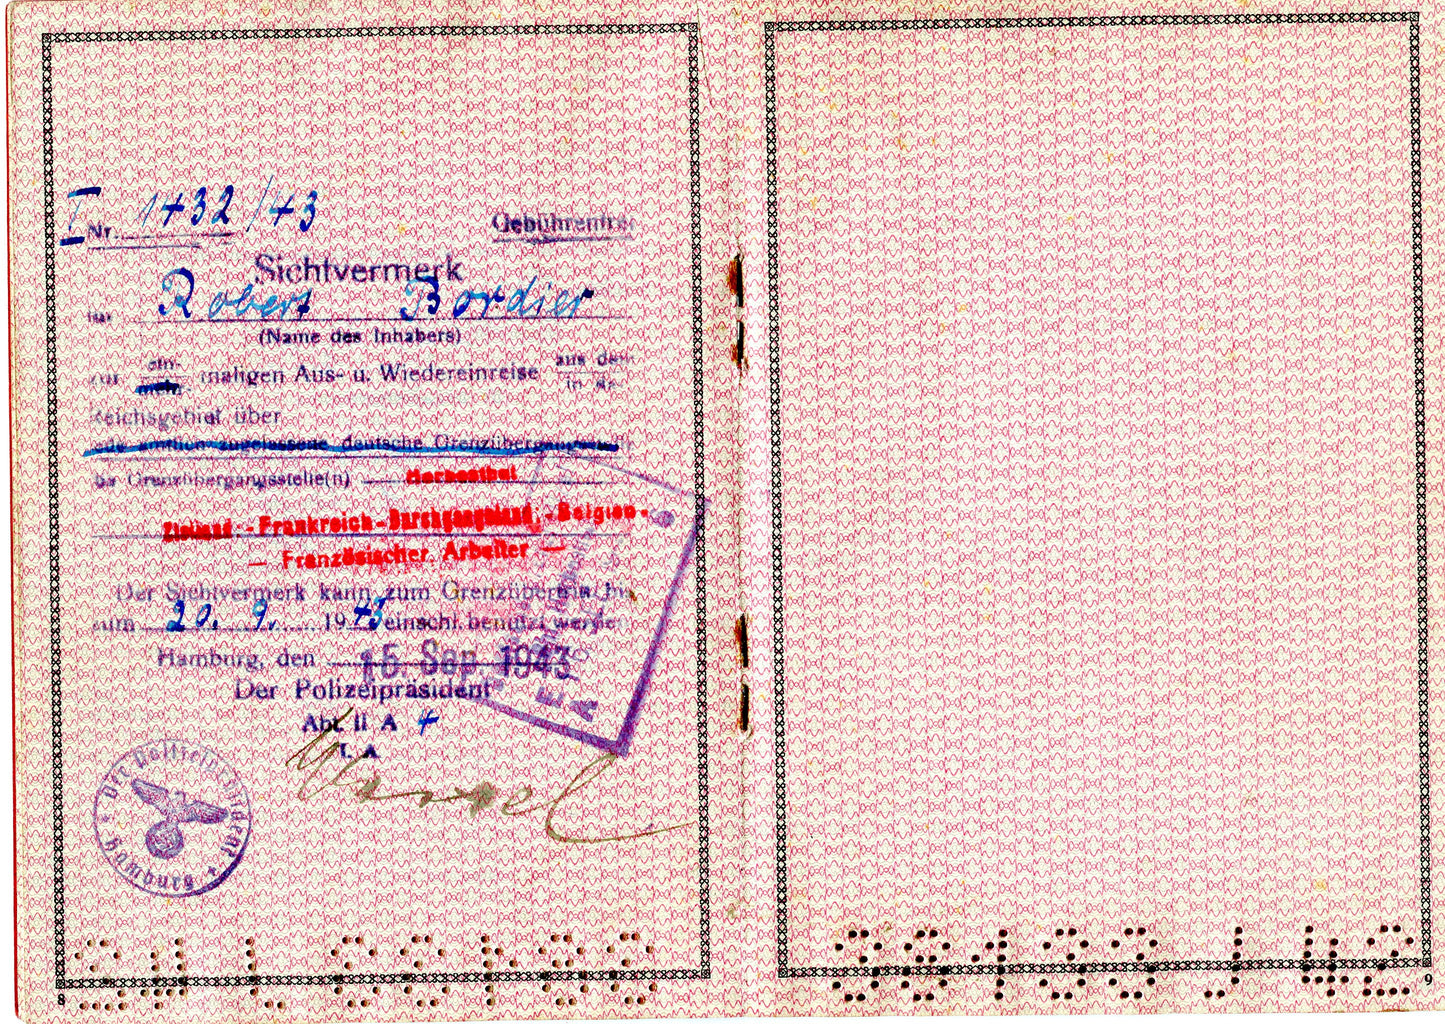 I Nr. 1432/43
Gebührenfrei
Sichtvermerk
Robert Bordier
(Name des Inhabers)
zur ein- maligen Aus- u. Wiedereinreise aus dem
mehr- in das
Reichsgebiet über
jede amtlich zugelassene deutsche Grenzübergangsstelle
Grenzübergangsstelle(n) Herbesthal
Zielland - Frankreich - Durchgangsland - Belgien -
— Französischer Arbeiter —
Der Sichtvermerk kann zum Grenzübertritt bis
zum 20. 9. 1943 einschl. benutzt werden
Hamburg, den 15. Sep. 1943
Der Polizeipräsident
Abt. II A 4
I. A
E
A
Der Polizeipräsident
Hamburg
8
9